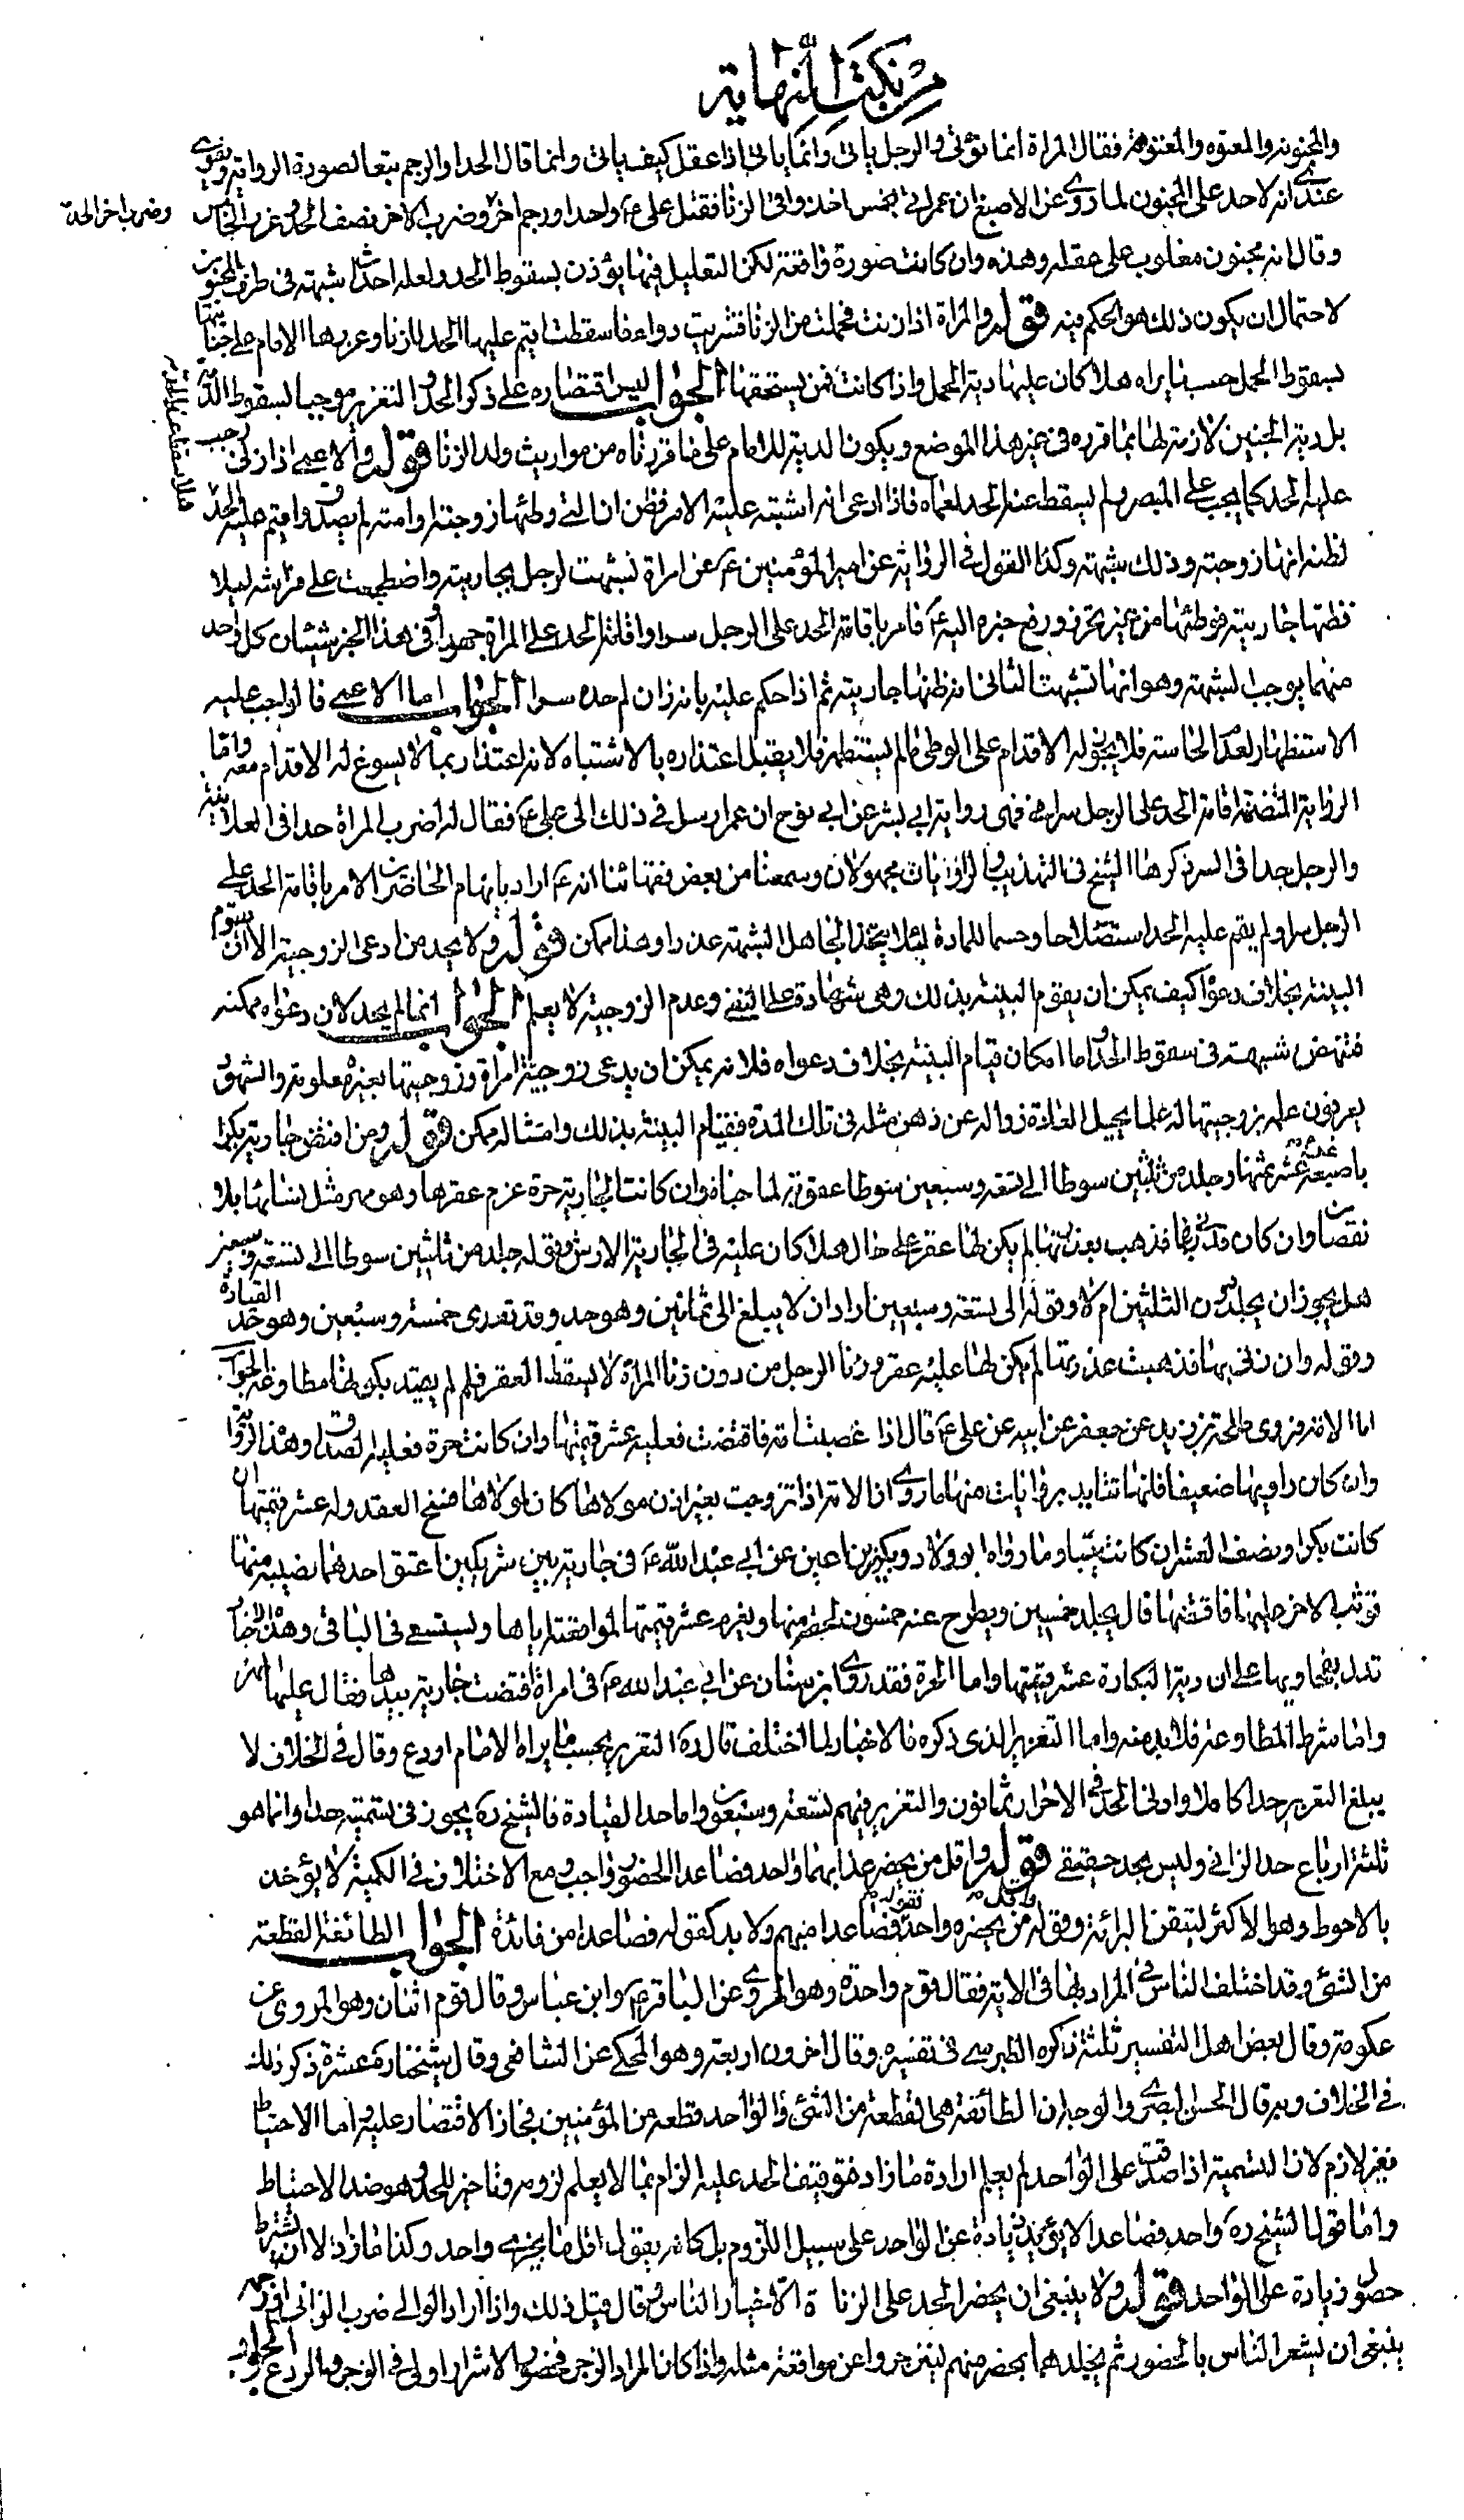 من نكت النهاية
والمجنونة والمعتوه والمعتوهة فقال المراة انما تؤتى والرجل ياتى وانما ياتى اذا عقل كيف ياتى وانما قال الحد او الرجم تبعا لصورة الرواية ويقوى
عندى انه لا حد على المجنون لما روى عن الاصبغ ان عمر اتى بخمس اخذوا فى الزنا فقتل على ع واحدا ورجم اخر وضرب الاخر نصف الحد وعزر الخامس
وضرب اخر الحد
وقال انه مجنون مغلوب على عقله وهذه وان كانت صورة واقعة لكن التعليل فيها يؤذن بسقوط الحد ولعله احدث شبهة فى طرف المجنون
لاحتمال ان يكون ذلك هو الحكم فيه قوله والمراة اذا زنت فحملت من الزنا فشربت دواء فاسقطت اقيم عليها الحد للزنا وعزرها الامام على جنايتها
بسقوط الحمل حسب ما يراه هلا كان عليها دية الحمل واذا كانت فمن يستحقها الجواب ليس اقتصاره على ذكر الحد والتعزير موجبا لسقوط الدية
بل دية الجنين لازمة لها بما قرره فى غير هذا الموضع ويكون الدية للامام على ما قررناه من مواريث ولد الزنا قوله والاعمى اذا زنى وجب
عليه الحد كما يجب على المبصر ولم يسقط عنه الحد لعماه فاذا ادعى انه اشتبه عليه الامر فظن ان التى وطئها زوجته او امته لم يصدق واقيم عليه الحد
لظنه انها زوجته وذلك شبهة وكذا القول فى الرواية عن امير المؤمنين ع عن امراة تشبهت لرجل بجاريته واضطجعت على فراشه ليلا
فظنها جاريته فوطئها من غير تحرز ورفع خبره اليه ع فامر باقامة الحد على الرجل سرا واقامة الحد على المراة جهرا وفى هذا الخبر شيئان كل واحد
منهما يوجب الشبهة وهو انها تشبهت الثانى انه ظنها جاريته ثم اذا حكم عليه بانه زان لم حده سرا الجواب اما الاعمى فالواجب عليه
الاستظهار لعدم الحاسة فلا يجوز له الاقدام على الوطى ما لم يستظهر فلا يقبل اعتذاره بالاشتباه لانه اعتذار بما لا يسوغ له الاقدام معه واما
الرواية المتضمنة اقامة الحد على الرجل سرا فهى رواية ابى بشر عن ابى نوح ان عمر ارسل فى ذلك الى على ع فقال له اضرب المراة حدا فى العلانية
والرجل حدا فى السر ذكرها الشيخ فى التهذيب والراويان مجهولان وسمعنا من بعض فقهائنا انه ع اراد بايهام الحاضرين الامر باقامة الحد على
الرجل سرا ولم يقم عليه الحد استصلاحا وحسما للمادة لئلا يتخذ الجاهل الشبهة عذرا وهذا ممكن قوله ولا يحد من ادعى الزوجية الا ان تقوم
البينة بخلاف دعواه كيف يمكن ان يقوم البينة بذلك وهى شهادة على النفى وعدم الزوجية لا يعلم الجواب انما لم يحد لان دعواه ممكنة
فتنهض شبهة فى سقوط الحد واما امكان قيام البينة بخلاف دعواه فلانه يمكن ان يدعى زوجية امراة وزوجيتها بغيره معلومة والشهود
يعرفون علمه بزوجيتها له علما يحيل العادة زواله عن ذهن مثله فى تلك المدة فقيام البينة بذلك وامثاله ممكن قوله ومن افتض جارية بكرا
باصبعه غرم عشر ثمنها وجلد من ثلثين سوطا الى تسعة وسبعين سوطا عقوبة لما جناه وان كانت الجارية حرة غرم عقرها وهو مهر مثل نسائها بلا
نقصان وان كان قد زنى بها فذهب بعذرتها لم يكن لها عقر على حال هلا كان عليه فى الجارية الارش وقوله جلد من ثلثين سوطا الى تسعة وسبعين
هل يجوز ان يجلد دون الثلثين ام لا وقوله الى تسعة وسبعين اراد ان لا يبلغ الى ثمانين وهو حد وقد تعدى خمسة وسبعين وهو حد القيادة
وقوله وان زنى بها فذهبت عذرتها لم يكن لها عليه عقر وزنا الرجل من دون زنا المراة لا يسقط العقر فلم لم يقيد بكونها مطاوعة الجواب
اما الامة فروى طلحة بن زيد عن جعفر عن ابيه عن على ع قال اذا غصبت امة فاقتضت فعليه عشر قيمتها وان كانت حرة فعليه الصداق وهذه الرواية
وان كان راويها ضعيفا فانها تتايد بروايات منها ما روى ان الامة اذا تزوجت بغير اذن مولاها كان لمولاها فسخ العقد وله عشر قيمتها ان
كانت بكرا ونصف العشر ان كانت ثيبا وما رواه ابو ولاد وبكير بن اعين عن ابى عبد الله ع فى جارية بين شريكين اعتق احدهما نصيبه منها
فوثب الاخر عليها فاقتضها قال يجلد خمسين ويطرح عنه خمسون لحقه منها ويغرم عشر قيمتها لمواقعته اياها ويستسعى فى الباقى وهذه الاخبار
تدل بفحاويها على ان دية البكارة عشر قيمتها واما الحرة فقد روى ابن سنان عن ابى عبد الله ع فى امراة اقتضت جارية بيدها فقال عليها المهر
واما شرط المطاوعة فلا بد منه واما التعزير الذى ذكره فالاخبار لما اختلف قال ره التعزير بحسب ما يراه الامام اردع وقال فى الخلاف لا
يبلغ التعزير حدا كاملا وادنى الحد فى الاحرار ثمانون والتعزير فيهم تسعة وسبعون واما حد القيادة فالشيخ ره يجوز فى تسميته حدا وانما هو
ثلثة ارباع حد الزانى وليس بحد حقيقى قوله واقل من يحضر عذابهما واحد فصاعدا الحضور واجب ومع الاختلاف فى الكمية لا يؤخذ
بالاحوط وهو الاكثر لتيقن البرائة وقوله واقل من يحضره واحد فصاعدا مبهم ولا بد لقوله فصاعدا من فائدة الجواب الطائفة القطعة
من الشئ وقد اختلف الناس فى المراد بها فى الاية فقال قوم واحدة وهو المروى عن الباقر ع وابن عباس وقال قوم اثنان وهو المروى عن
عكرمة وقال بعض اهل التفسير ثلثة ذكره الطبرسى فى تفسيره وقال اخرون اربعة وهو المحكى عن الشافعى وقال شيخنا ره عشرة ذكر ذلك
فى الخلاف وبه قال الحسن البصرى والوجه ان الطائفة هى القطعة من الشئ والواحد قطعة من المؤمنين فجاز الاقتصار عليه واما الاحتياط
فغير لازم لان التسمية اذا صدقت على الواحد لم يعلم ارادة ما زاد فتوقيف الحد عليه الزام بما لا يعلم لزومه وتاخير للحد وهو ضد الاحتياط
واما قول الشيخ ره واحد فصاعدا لا يريد زيادة عن الواحد على سبيل اللزوم بل كانه يقول اقل ما يجزى واحد وكذا ما زاد لا ان يشترط
حصول زيادة على الواحد قوله ولا ينبغى ان يحضر الحد على الزناة الا خيار الناس وقال قبل ذلك واذا اراد الوالى ضرب الزانى او رجمه
ينبغى ان يشعر الناس بالحضور ثم يجلده بمحضر منهم لينزجروا عن مواقعة مثله واذا كان المراد الزجر فحضور الاشرار اولى فى الزجر والردع الجواب